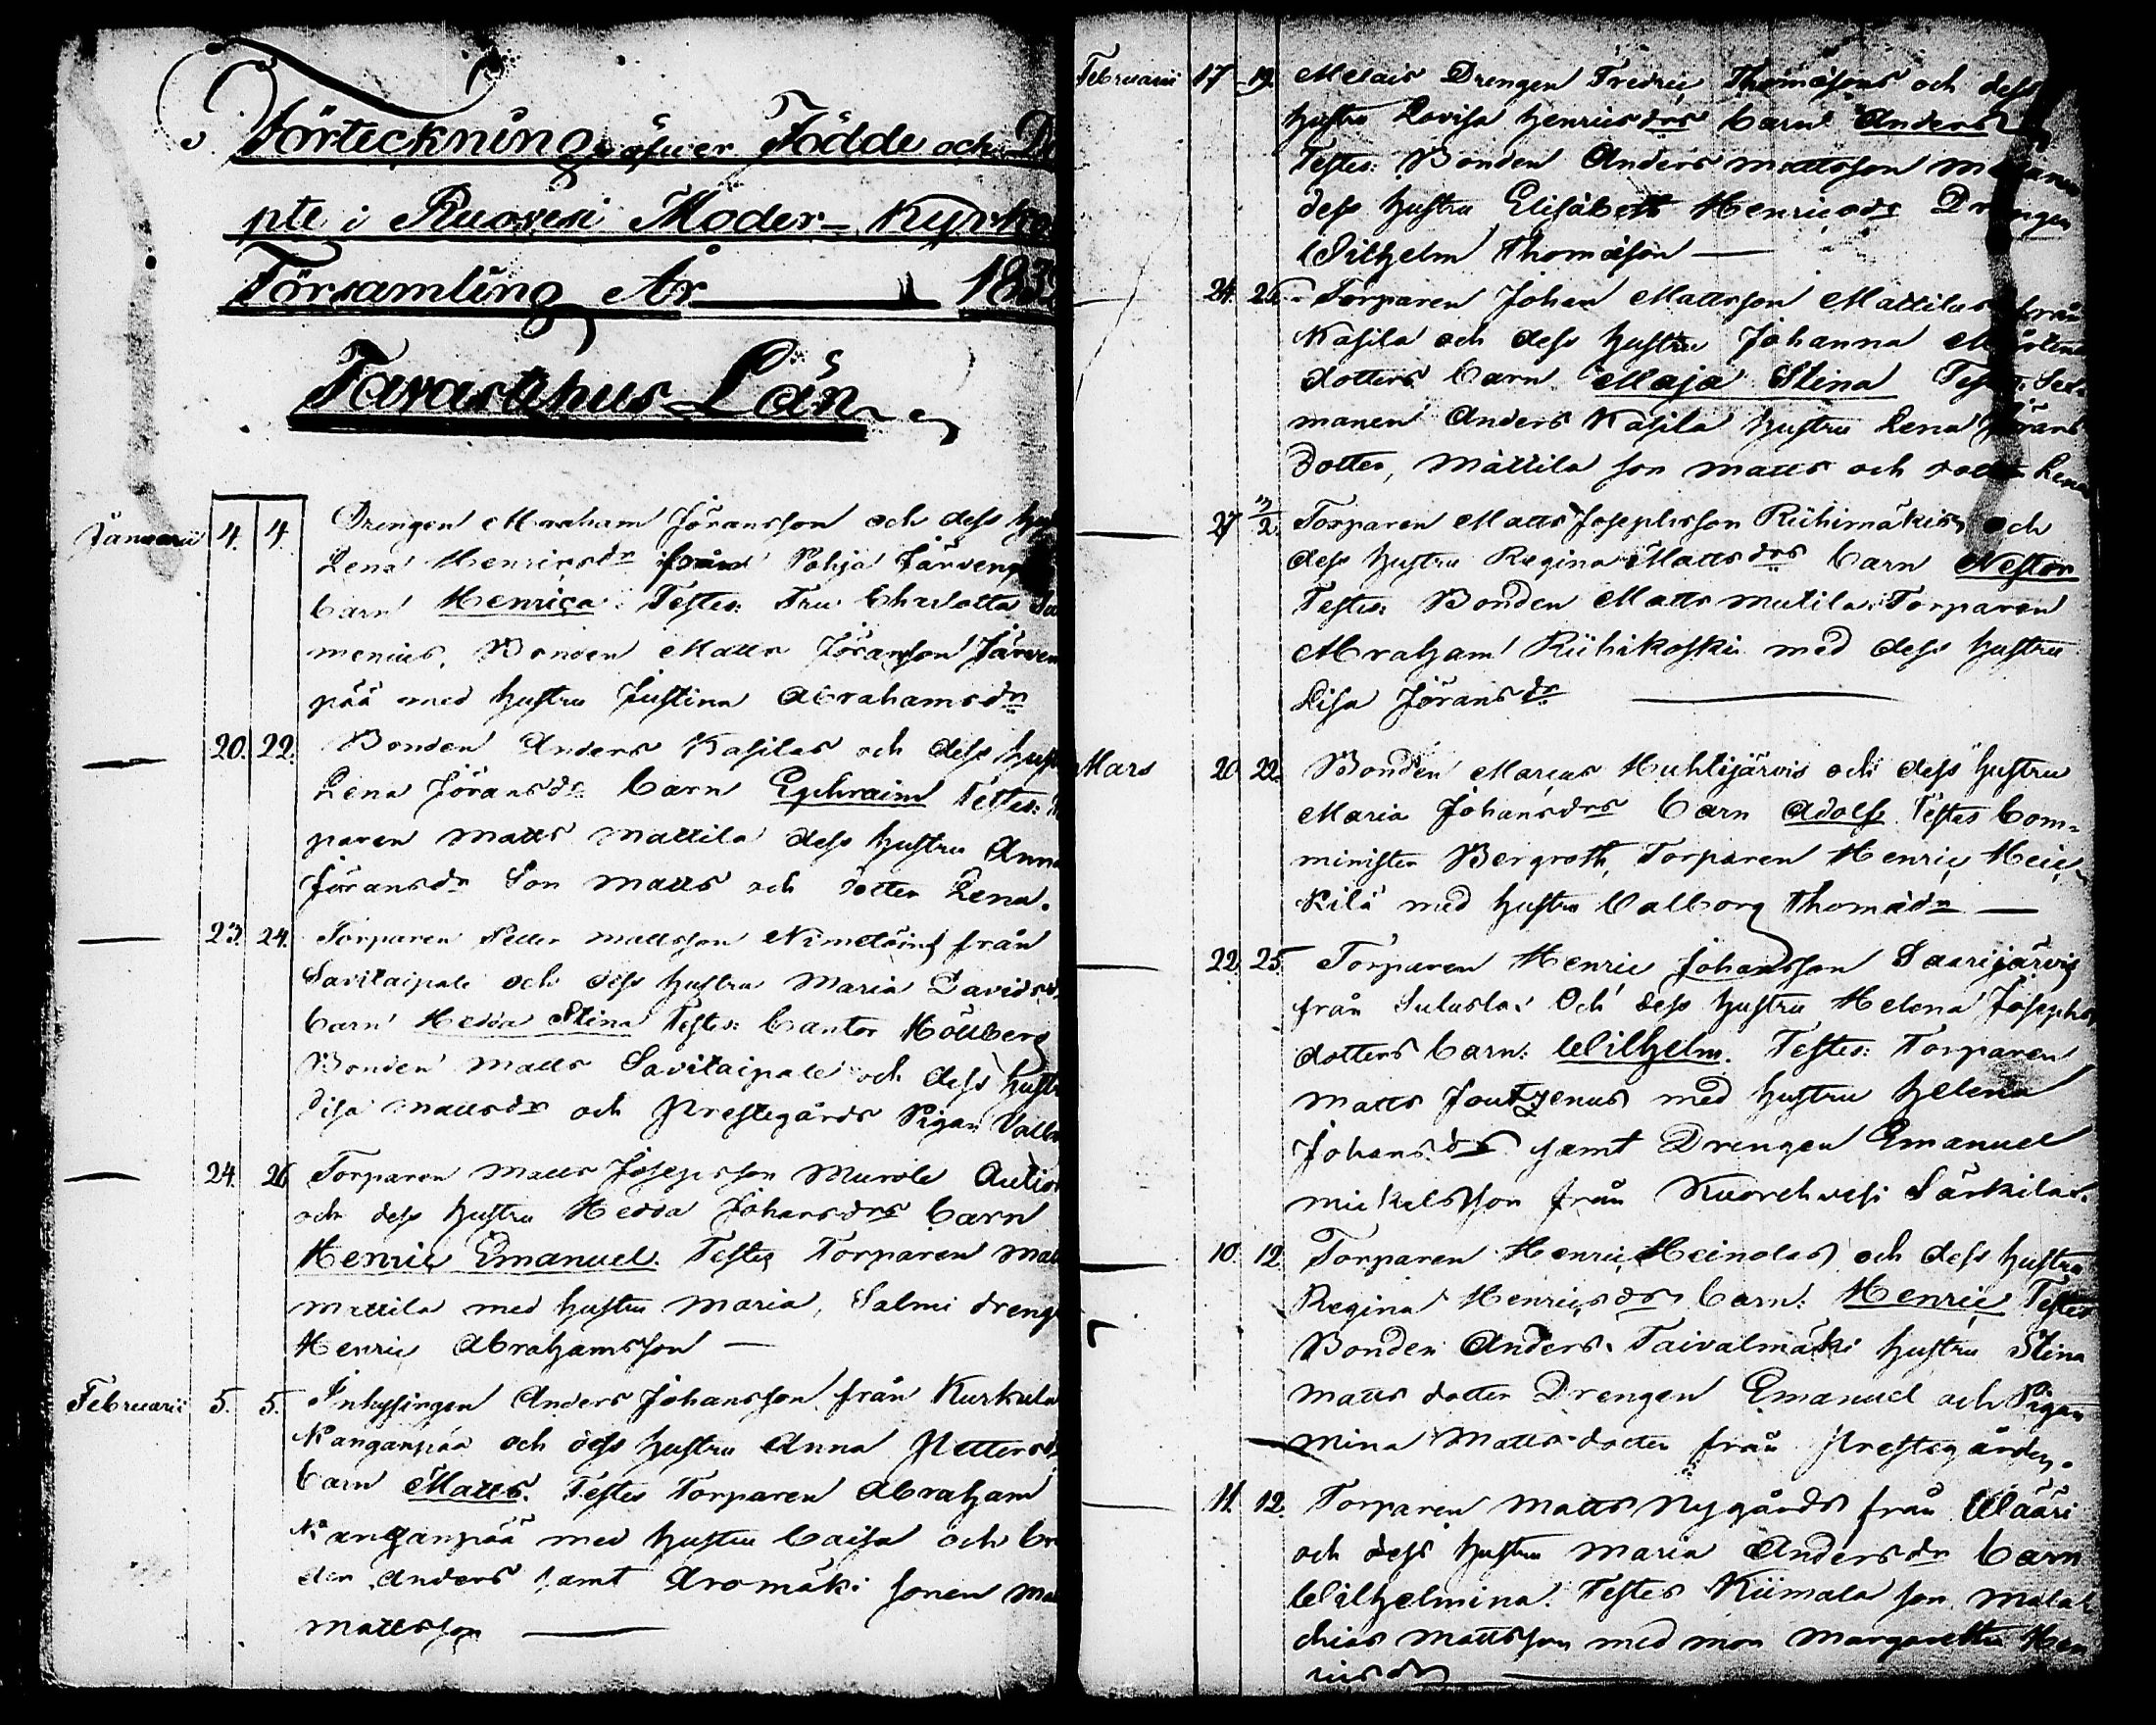 Förteckning öfwer Födde och Dö
pte i Ruovesi Moder-Kyrko
Församling År 183
Tavastehus Län
Januarii 4. 4. Drengen Abraham Jöransson och dess hust
Lena Henricsdr från Pohja Järvenp
barn Henrica. Testes: Fru Charlotta
menius, Bonden Matts Jöransson Järven
pää med hustru Justina Abrahamsdr
— 20. 22. Bonden Anders Kasilas och dess hust
Lena Jöransdrs barn Ephraim Testes:
paren Matts Mattila dess hustru Anna
Jöransdr Son Matts och dotter Lena.
— 23. 24. Torparen Petter Mattsson från
Savitaipale och dess hustru Maria Davidsd
barn Hedda Stina Testes: Cantor
Bonden Matts Savitaipale och dess hustr
Lisa Mattsdr och Prestegårds Pigan Valb
— 24. 26 Torparen Matts Josepsson Murole Autio
och dess hustru Hedda Johansdrs barn
Henric Emanuel. Testes Torparen Mat
Mattila med hustru Maria, Salmi dreng
Henric Abrahamsson —
Februarii 5. 5. Inhysingen Anders Johansson från Kurkula
Kanganpää och dess hustru Anna Pettersd
barn Matts. Testes Torparen Abraham
Kanganpää med hustru Caisa och bro
der Anders samt Aromäki sonen Ma
Mattsson —
Februarii 17 19. Melais Drengen Fredric Thomassons och dess
hustru Lovisa Henricsdrs barn Anders
Testes: Bonden Anders Mattsson
dess hustru Elisabeth Henricsdr Drengen
Wilhelm Thomasson —
— 24. 25. Torparen Johan Mattsson Mattilas från
Kasila och dess hustru Johanna Mårtens
dotters barn Maja Stina Testes: Sex-
manen Anders Kasila hustru Lena Jörans
dotter, Mattila son Matts och dotter Lena
— 27 2. Torparen Matts Josephsson Riihimäkis och
dess hustru Regina Mattsdrs barn Nestor
Testes: Bonden Matts Mutila Torparen
Abraham Riihikoski med dess hustru
Lisa Jöransdr —
Mars 20 22. Bonden Marcus Huhlijärvis och dess hustru
Maria Johansdrs barn Adolf Testes Com-
minister Bergroth, Torparen Henric Heic
kilä med hustru Valborg Thomadr —
— 22. 25. Torparen Henric Johansson Saarijärvis
från och dess hustru Helena Josephs
dotters barn: Wilhelm. Testes: Torparen
Matts Joutzenus med hustru Helena
Johansdr samt Drengen Emanuel
Mickelsson från Kuorehvesi Särkilas.
— 10. 12 Torparen Henric Heinolas och dess hustru
Regina Henricsdrs barn: Henric Testes
Bonden Anders Taivalmäki hustru Stina
Matts dotter Drengen Emanuel och Pigan
Mina Matts dotter från Prestegården.
— 11. 12. Torparen Matts Nygårds från Wääri
och dess hustru Maria Andersdr barn
Wilhelmina. Testes Kiimala son Mala
chias Mattsson med mor Margaretha Hen
ricsdr —